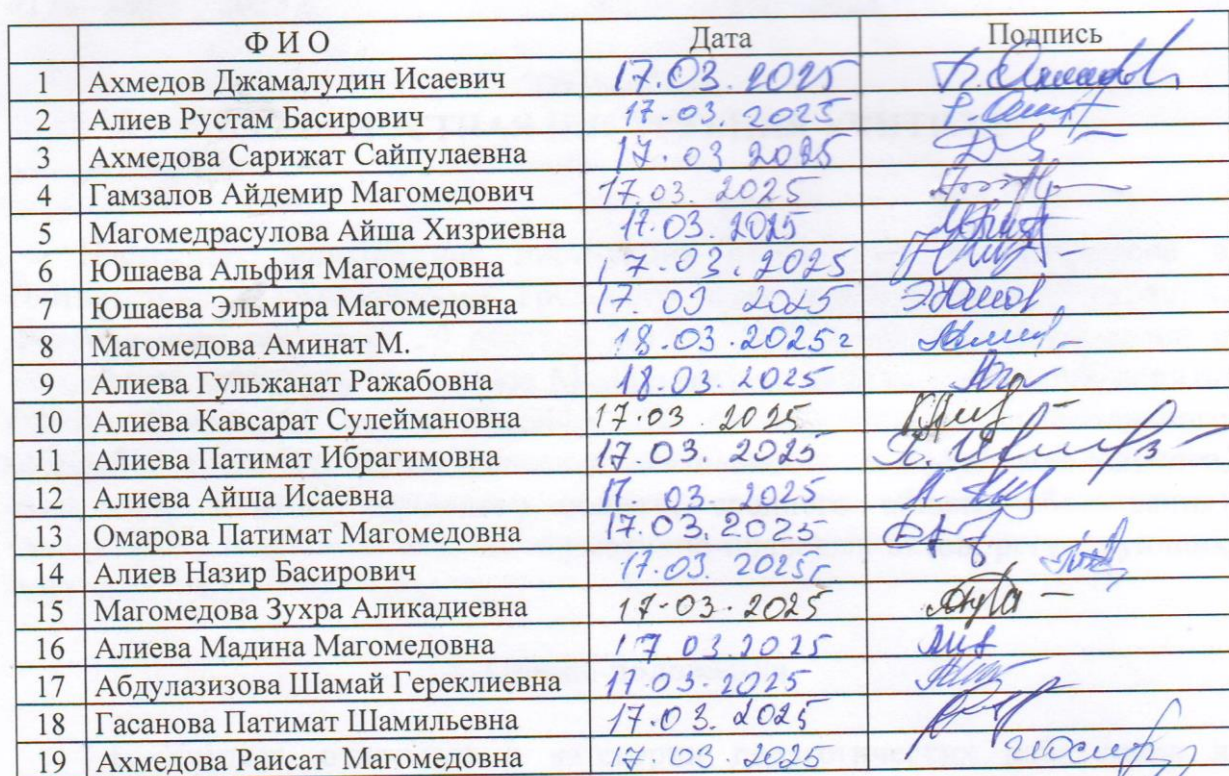 Ф И О Дата Подпись
1 Ахмедов Джамалудин Исаевич 17.03.2025
2 Алиев Рустам Басирович 17.03.2025
3 Ахмедова Сарижат Сайпулаевна 17.03 2025
4 Гамзалов Айдемир Магомедович 17.03. 2025
5 Магомедрасулова Айша Хизриевна 17.03. 2025
6 Юшаева Альфия Магомедовна 17.03.2025
7 Юшаева Эльмира Магомедовна 17. 03 2025
8 Магомедова Аминат М. 18.03.2025г
9 Алиева Гульжанат Ражабовна 18.03.2025
10 Алиева Кавсарат Сулеймановна 17.03 2025
11 Алиева Патимат Ибрагимовна 17.03. 2025
12 Алиева Айша Исаевна 17. 03.2025
13 Омарова Патимат Магомедовна 17.03.2025
14 Алиев Назир Басирович 17.03. 2025г
15 Магомедова Зухра Аликадиевна 17.03.2025
16 Алиева Мадина Магомедовна 17 03.2025
17 Абдулазизова Шамай Гереклиевна 17.03.2025
18 Гасанова Патимат Шамильевна 17.03. 2025
19 Ахмедова Раисат Магомедовна 17.03.2025